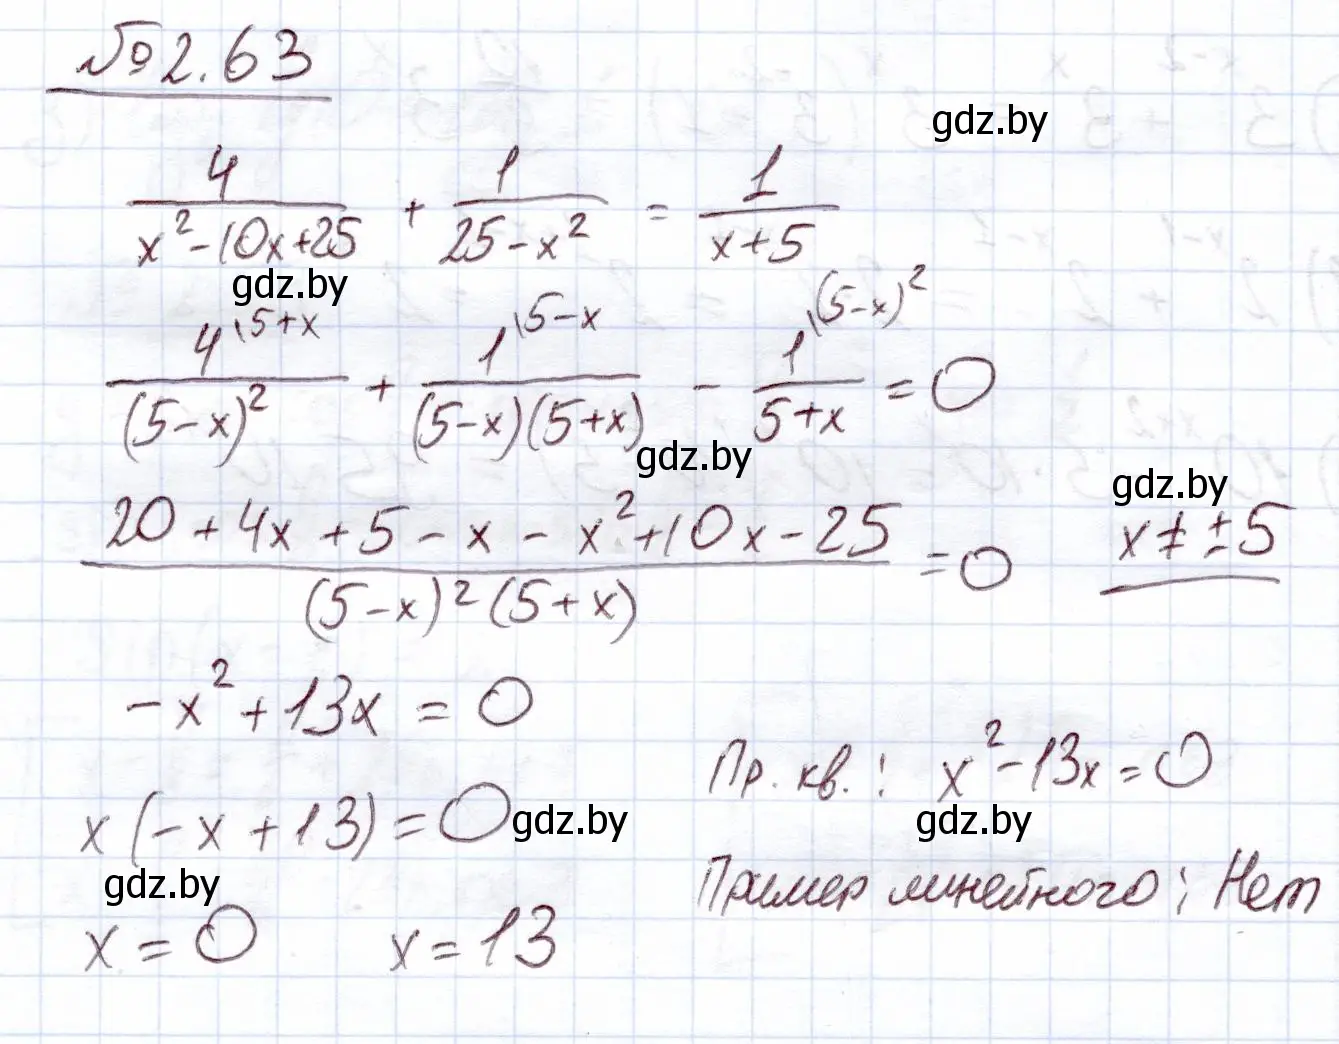 № 2.63
gdz.by
4/(x²-10x+25) + 1/(25-x²) = 1/(x+5)
gdz.by
4\5+x/(5-x)² + 1\5-x/((5-x)(5+x)) - 1\(5-x)²/(5+x) = 0
gdz.by
gdz.by
(20+4x+5-x-x²+10x-25)/((5-x)²(5+x)) = 0 x ≠ ±5
-x²+13x = 0
Пр. кв.: x²-13x=0
x(-x+13)=0
gdz.by gdz.by
gdz.by
Пример линейного: Нет
x=0 x=13